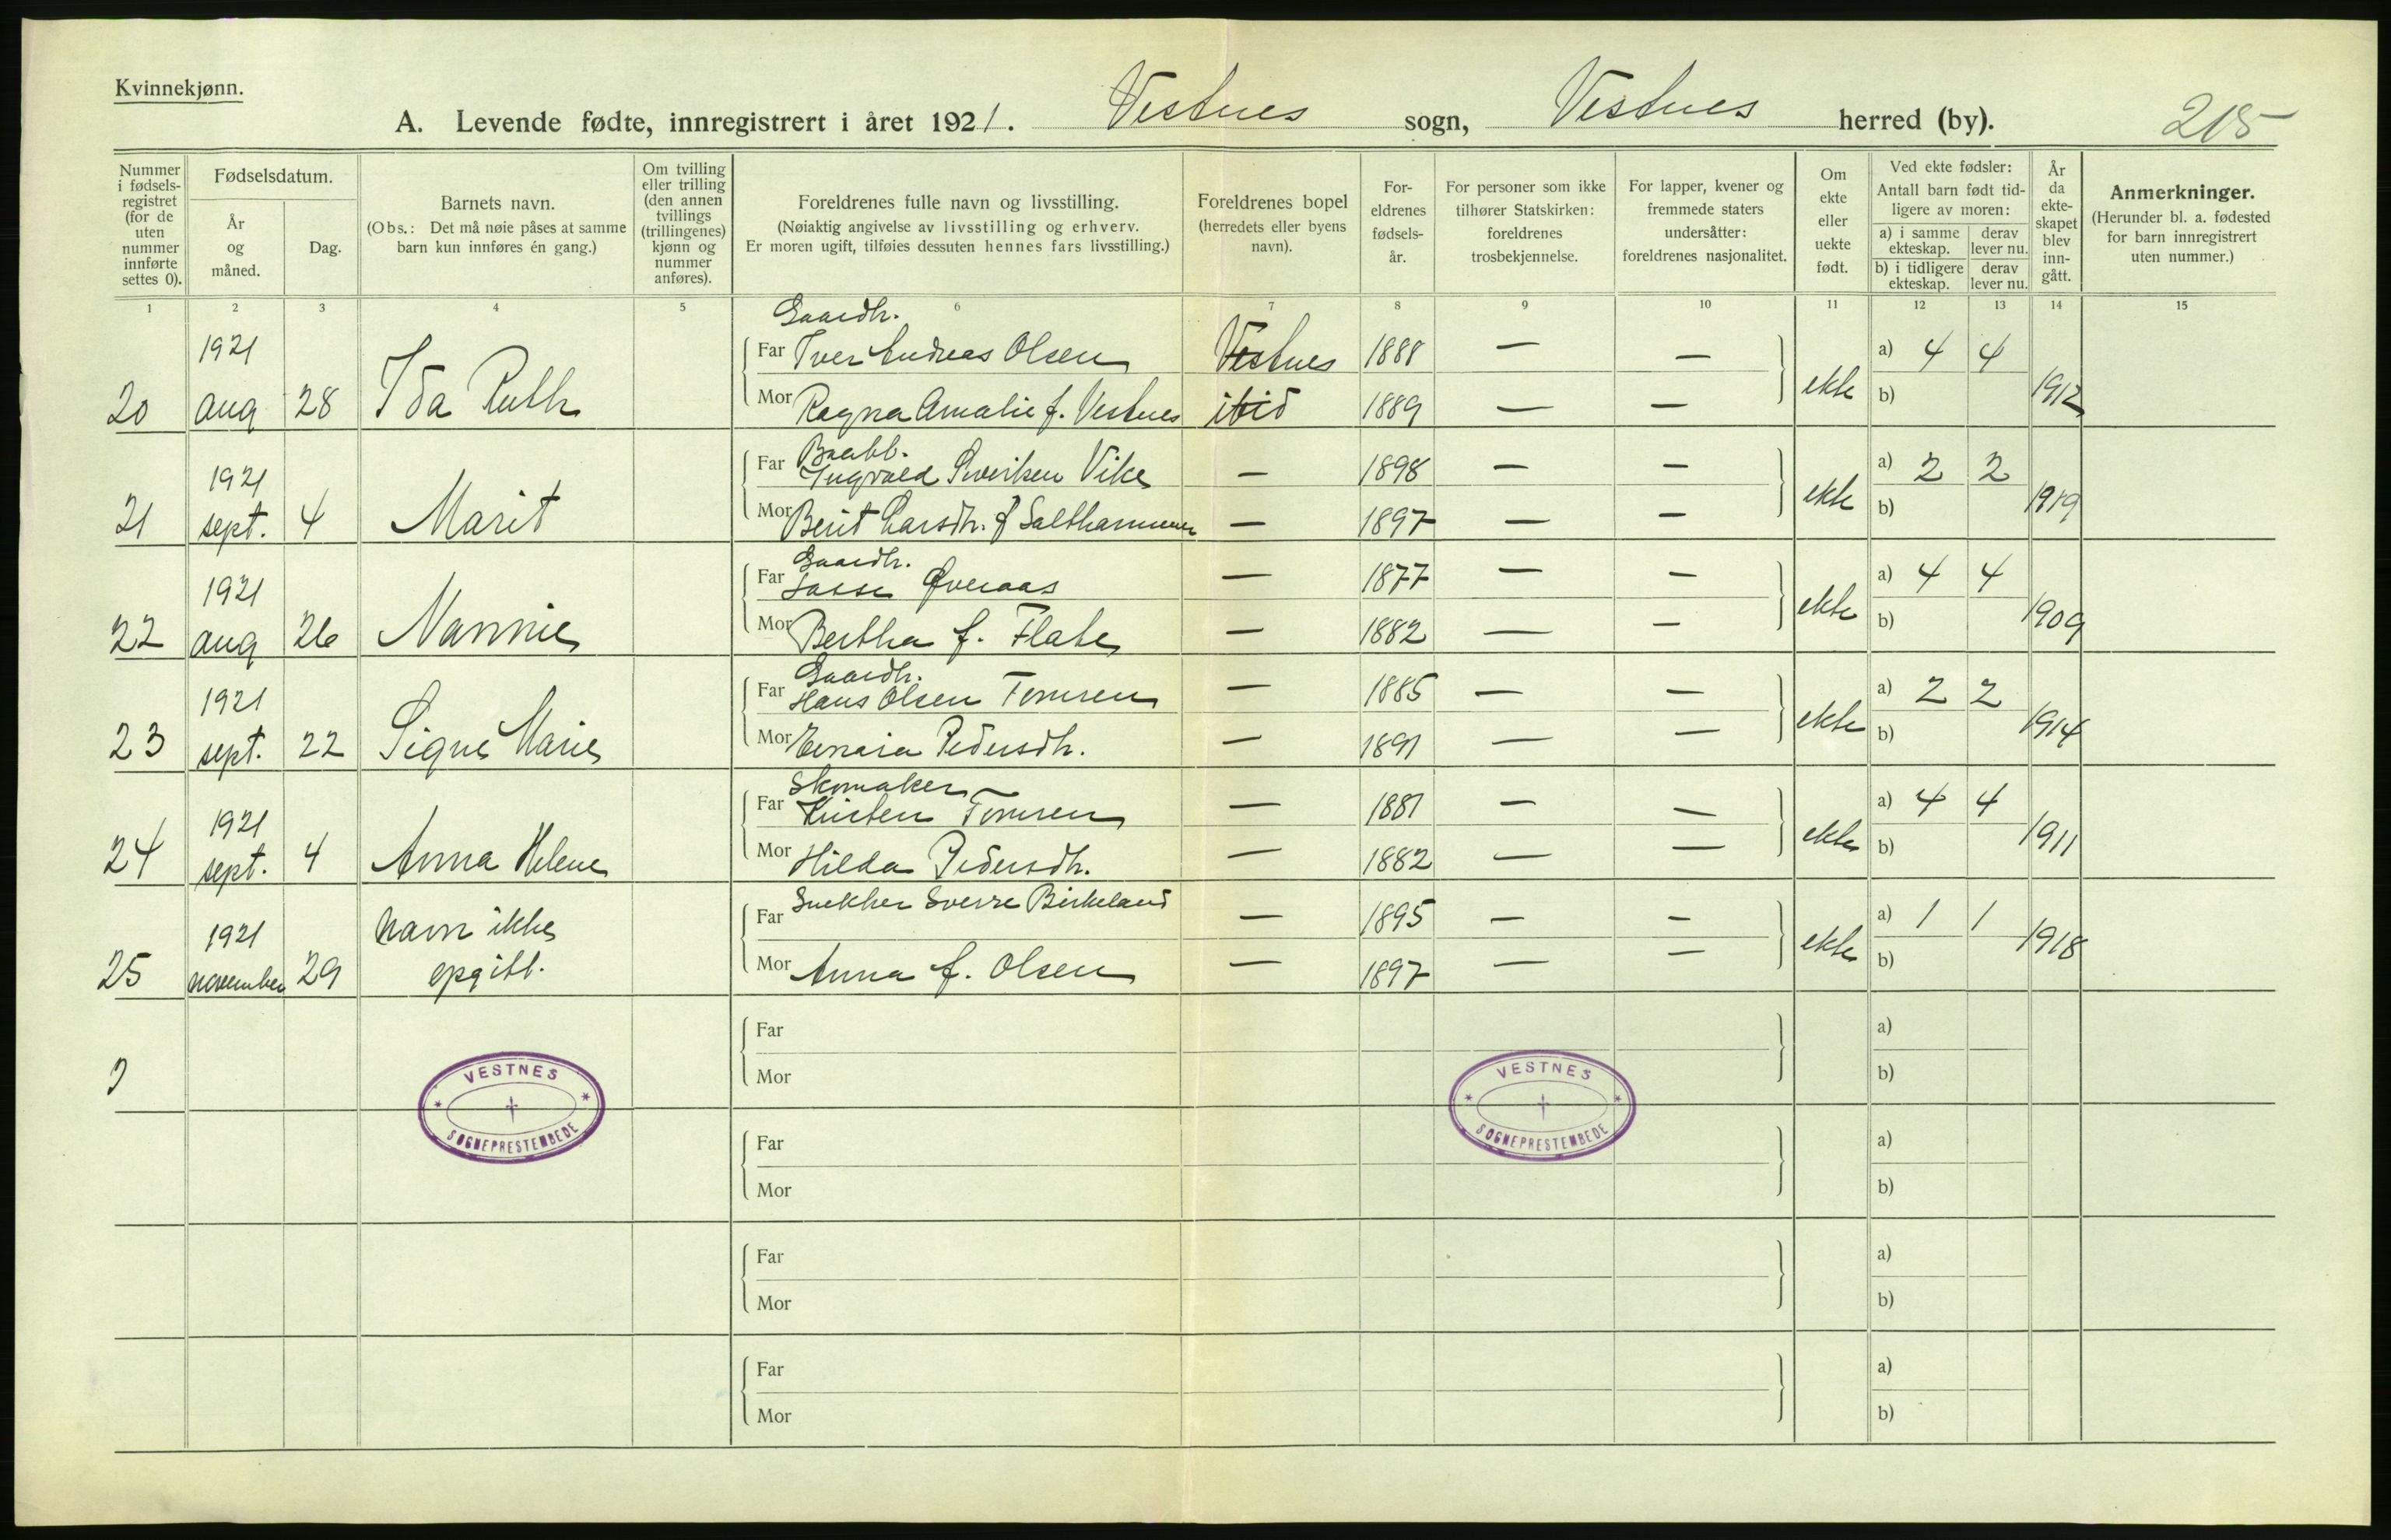 Kvinnekjønn.
A. Levende fødte, innregistrert i året 1921. Vestnes sogn, Vestnes herred (by). 215
Nummer i fødsels-registret (for de uten nummer innførte settes 0).
Fødselsdatum.
År og måned.
Dag.
Barnets navn.
(Obs.: Det må nøie påses at samme barn kun innføres én gang.)
Om tvilling eller trilling (den annen tvillings (trillingenes) kjønn og nummer anføres).
Foreldrenes fulle navn og livsstilling.
(Nøiaktig angivelse av livsstilling og erhverv.
Er moren ugift, tilføies dessuten hennes fars livsstilling.)
Foreldrenes bopel
(herredets eller byens navn).
For-eldrenes fødsels-år.
For personer som ikke tilhører Statskirken: foreldrenes trosbekjennelse.
For lapper, kvener og fremmede staters undersåtter: foreldrenes nasjonalitet.
Om ekte eller uekte født.
Ved ekte fødsler:
Antall barn født tid-ligere av moren:
a) i samme ekteskap. derav lever nu.
b) i tidligere ekteskap. derav lever nu.
År da ekte-skapet blev inn-gått.
Anmerkninger.
(Herunder bl. a. fødested for barn innregistrert uten nummer.)
1 2 3 4 5 6 7 8 9 10 11 12 13 14 15
Gaardbr.
1921 Far Iver Andreas Olsen Vestnes 1888 — — a) 4 4
20 aug 28 Ida Ruth Mor Ragna Amalie f. Vestnes ibid 1889 — — ekte b) 1912
1921 Far Ingvald Siverksen Vike — 1898 — — a) 2 2
21 sept. 4 Marit Mor Berit Larsdtr. f Salthammer — 1897 — — ekte b) 1919
Gaardbr.
1921 Far Lasse Øveraas — 1877 — — a) 4 4
22 aug 26 Nannie Mor Bertha f. Flate — 1882 — — ekte b) 1909
Gaardbr.
1921 Far Hans Olsen Tomren — 1885 — — a) 2 2
23 sept. 22 Signe Marie Mor Pedersdtr. — 1891 — — ekte b) 1914
Skomaker
1921 Far Tomren — 1881 — — a) 4 4
24 sept. 4 Anna Helene Mor Hilda Pedersdtr. — 1882 — — ekte b) 1911
Snekker Sverre Birkeland
1921 Navn ikke Far — 1895 — — a) 1 1
25 november 29 opgitt. Mor Anna f. Olsen — 1897 — — ekte b) 1918
Far a)
Mor b)
VESTNES
SOGNEPRESTEMBEDE
VESTNES
SOGNEPRESTEMBEDE
Far a)
Mor b)
Far a)
Mor b)
Far a)
Mor b)